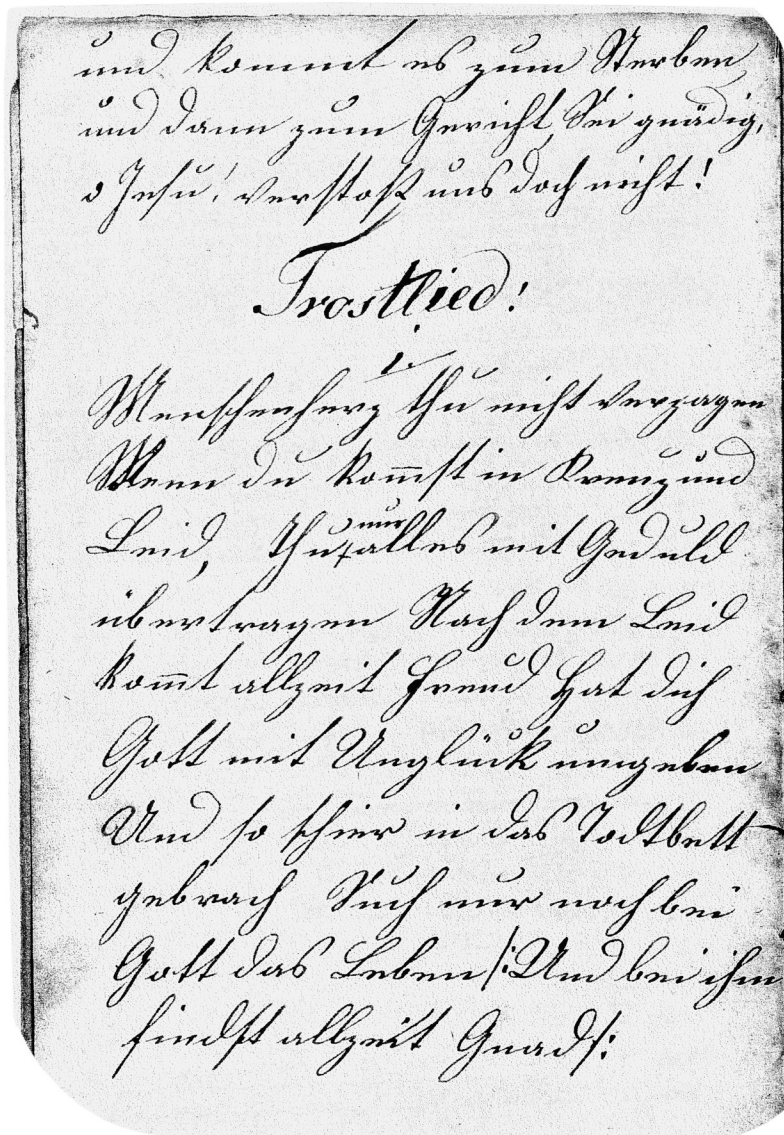 und kommt es zum Sterben
und dann zum Gericht, Sei gnädig,
o Jesu! verstoß uns doch nicht!
Trostlied!
1.
Menschenherz thu nicht verzagen
Wenn du kom̅st in Kreuz und
Leid, Thu nur alles mit Geduld
übertragen Nach dem Leid
kom̅t allzeit Freud Hat dich
Gott mit Unglück umgeben
Und so schier in das Todtbett
gebrach Such nur noch bei
Gott das Leben /: Und bei ihm
findst allzeit Gnad :/: